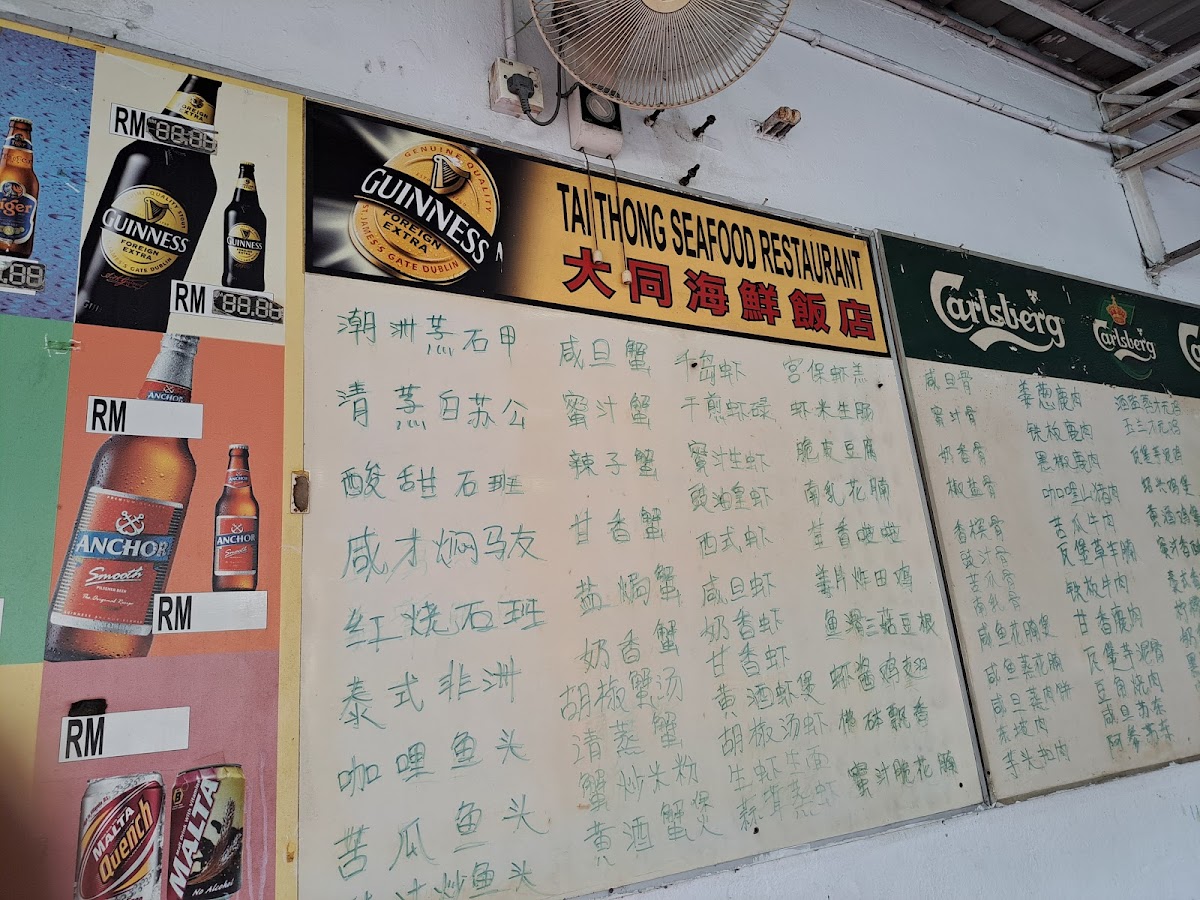 Tiger
RM 88.88
FOREIGN EXTRA
GUINNESS
FOREIGN EXTRA
GUINNESS
RM 88.88
ANCHOR
RM
ANCHOR
Smooth
PILSENER BEER
ANCHOR
Smooth
RM
RM
MALTA
Quench
MALTA
No Alcohol
GENUINE QUALITY
GUINNESS
FOREIGN
EXTRA
ST. JAMES'S GATE DUBLIN
TAI THONG SEAFOOD RESTAURANT
大同海鮮飯店
潮洲蒸石甲
清蒸白苏公
酸甜石班
咸才焖马友
红烧石班
泰式非洲
咖哩鱼头
苦瓜鱼头
炒鱼头
咸旦蟹
蜜汁蟹
辣子蟹
甘香蟹
盐焗蟹
奶香蟹
胡椒蟹汤
清蒸蟹
蟹炒米粉
黄酒蟹煲
干岛虾
干煎虾碌
蜜汁生虾
豉油皇虾
西式虾
咸旦虾
奶香虾
甘香虾
黄酒虾煲
胡椒汤虾
生虾生面
蒜茸蒸虾
宫保虾羔
虾米生肠
脆皮豆腐
南乳花腩
荳香啦啦
姜片炸田鸡
鱼滑三菇豆根
虾酱鸡翅
僧砵飘香
蜜汁脆花腩
Carlsberg
Carlsberg
咸旦骨
蜜汁骨
奶香骨
椒盐骨
香槟骨
豉汁骨
苦瓜骨
南乳骨
咸鱼花腩煲
咸鱼蒸花腩
咸旦蒸肉饼
东坡肉
芋头扣肉
姜葱鹿肉
铁板鹿肉
黑椒鹿肉
咖哩山猪肉
苦瓜牛肉
瓦煲草牛腩
铁板牛肉
甘香鹿肉
瓦煲芋泥骨
豆角烧肉
咸旦苏东
阿参苏东